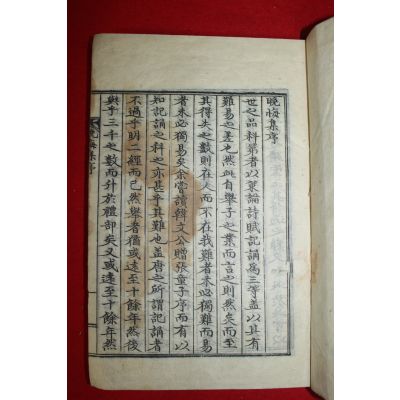 晩悔集序
世之品科業者以策論詩賦記誦爲三等盖以其有
難易之差也然此自擧子之業而言之則然矣而至
其得失之數則在人而不在我難者未必獨難而易
者未必獨易矣余嘗讀韓文公贈張童子序而有以
知記誦之科之亦甚乎其難也盖唐之所謂記誦者
不過乎明二經而已然擧者猶或遠至十餘年然
與乎三千之數而升於禮部矣又或遠至十餘年然
晩悔集序